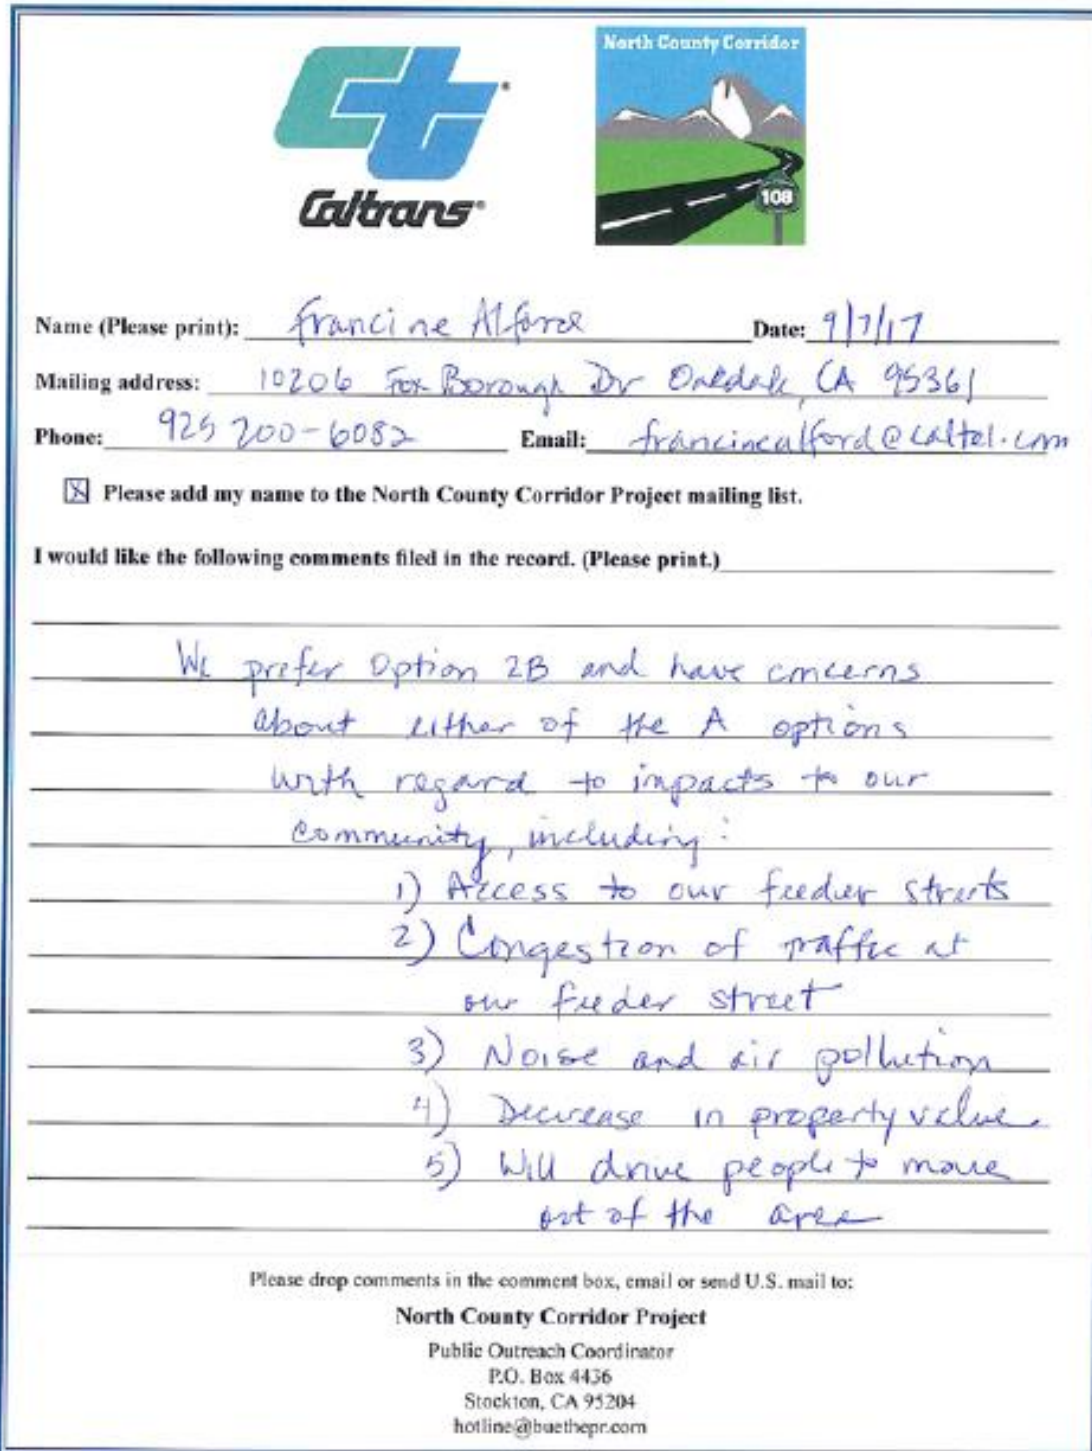 North County Corridor
Ct®
108
Caltrans®
Name (Please print): Francine Alford Date: 9/7/17
Mailing address: 10206 Fox Borough Dr Oakdale, CA 95361
Phone: 925 200-6082 Email: francinealford@caltel.com
☒ Please add my name to the North County Corridor Project mailing list.
I would like the following comments filed in the record. (Please print.)
We prefer Option 2B and have concerns
about either of the A options
with regard to impacts to our
community, including:
1) Access to our feeder streets
2) Congestion of traffic at
our feeder street
3) Noise and air pollution
4) Decrease in property value
5) Will drive people to move
out of the area
Please drop comments in the comment box, email or send U.S. mail to:
North County Corridor Project
Public Outreach Coordinator
P.O. Box 4436
Stockton, CA 95204
hotline@buethepr.com